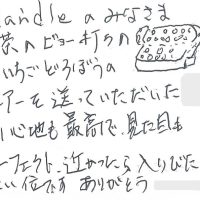 andle のみなさま
のビョー打ちの
いちごどろぼうの
アーを送っていただいた
心地も最高で、見た目も
ーフェクト、近かったら入りびた
い位です ありがとう